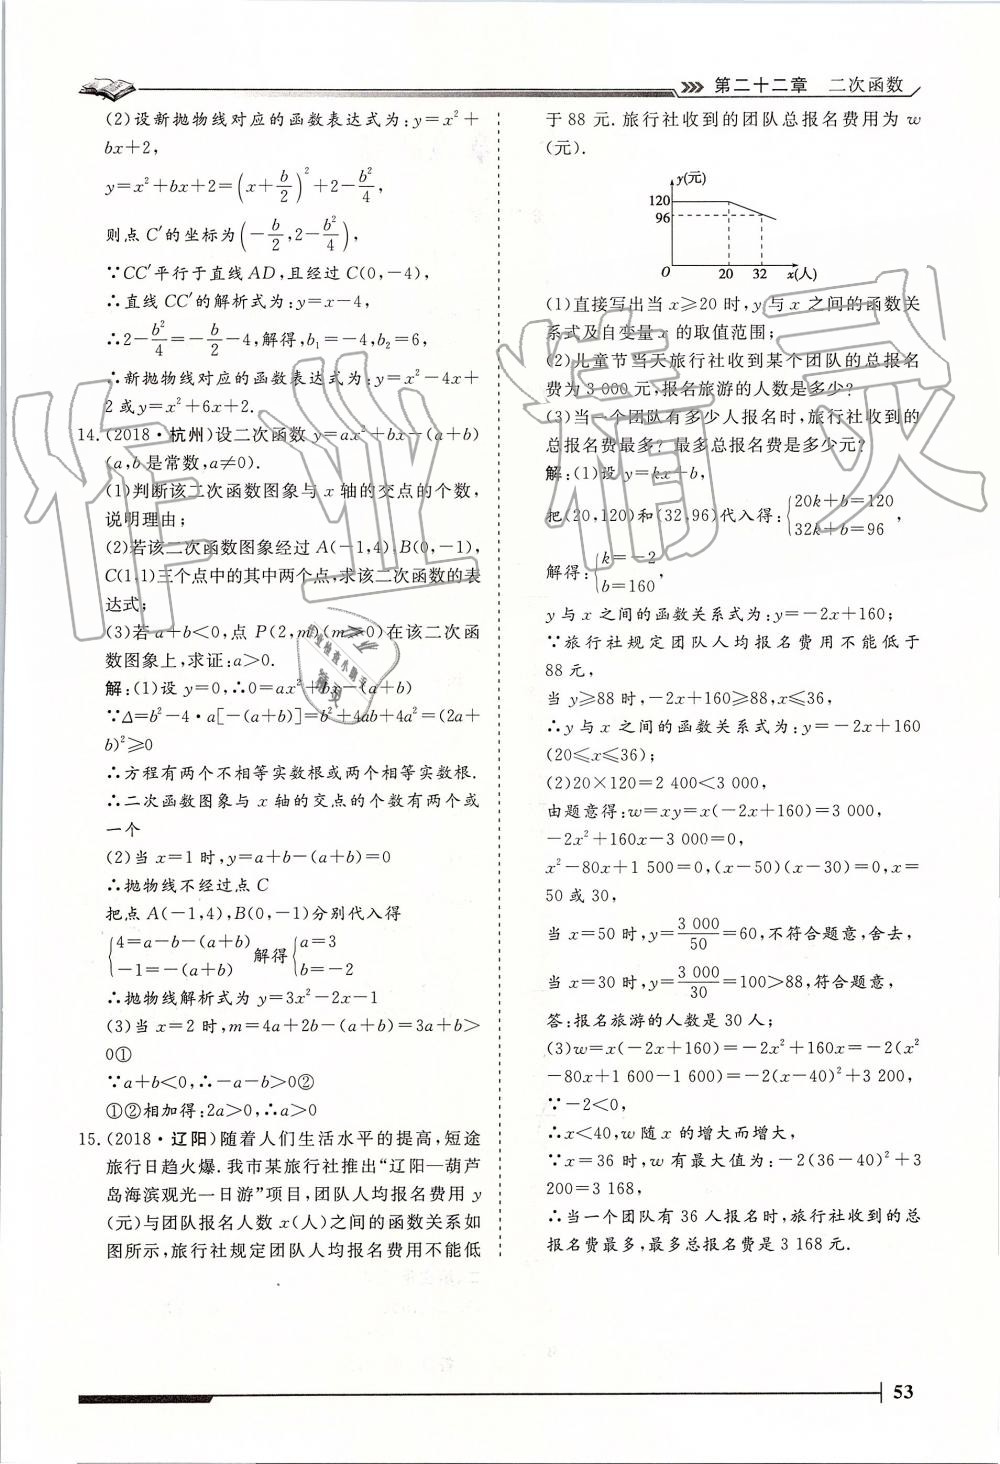 第二十二章 二次函数
(2)设新抛物线对应的函数表达式为:y=x²+
bx+2,
y=x²+bx+2=(x+b/2)²+2-b²/4,
则点 C′的坐标为(-b/2,2-b²/4),
∵CC′平行于直线 AD,且经过 C(0,-4),
∴直线 CC′的解析式为:y=x-4,
∴2-b²/4=-b/2-4,解得,b₁=-4,b₂=6,
∴新抛物线对应的函数表达式为:y=x²-4x+
2 或y=x²+6x+2.
14.(2018·杭州)设二次函数 y=ax²+bx-(a+b)
(a,b 是常数,a≠0).
(1)判断该二次函数图象与 x 轴的交点的个数,
说明理由;
(2)若该二次函数图象经过 A(-1,4),B(0,-1),
C(1,1)三个点中的其中两个点,求该二次函数的表
达式;
(3)若 a+b<0,点 P(2,m)(m>0)在该二次函
数图象上,求证:a>0.
解:(1)设 y=0,∴0=ax²+bx-(a+b)
∵Δ=b²-4·a[-(a+b)]=b²+4ab+4a²=(2a+
b)²≥0
∴方程有两个不相等实数根或两个相等实数根.
∴二次函数图象与 x 轴的交点的个数有两个或
一个
(2)当 x=1 时,y=a+b-(a+b)=0
∴抛物线不经过点 C
把点 A(-1,4),B(0,-1)分别代入得
{4=a-b-(a+b) 解得 {a=3
-1=-(a+b) b=-2
∴抛物线解析式为 y=3x²-2x-1
(3)当 x=2 时,m=4a+2b-(a+b)=3a+b>
0①
∵a+b<0,∴-a-b>0②
①②相加得:2a>0,∴a>0
15.(2018·辽阳)随着人们生活水平的提高,短途
旅行日趋火爆.我市某旅行社推出“辽阳—葫芦
岛海滨观光一日游”项目,团队人均报名费用 y
(元)与团队报名人数 x(人)之间的函数关系如
图所示,旅行社规定团队人均报名费用不能低
于88 元.旅行社收到的团队总报名费用为 w
(元).
y(元)
120
96
O 20 32 x(人)
(1)直接写出当 x≥20 时,y 与 x 之间的函数关
系式及自变量 x 的取值范围;
(2)儿童节当天旅行社收到某个团队的总报名
费为 3 000 元,报名旅游的人数是多少?
(3)当一个团队有多少人报名时,旅行社收到的
总报名费最多?最多总报名费是多少元?
解:(1)设 y=kx+b,
把(20,120)和(32,96)代入得:{20k+b=120
32k+b=96,
解得:{k=-2
b=160,
y 与 x 之间的函数关系式为:y=-2x+160;
∵旅行社规定团队人均报名费用不能低于
88 元,
当 y≥88 时,-2x+160≥88,x≤36,
∴y 与 x 之间的函数关系式为:y=-2x+160
(20≤x≤36);
(2)20×120=2 400<3 000,
由题意得:w=xy=x(-2x+160)=3 000,
-2x²+160x-3 000=0,
x²-80x+1 500=0,(x-50)(x-30)=0,x=
50 或 30,
当 x=50 时,y=3 000/50=60,不符合题意,舍去,
当 x=30 时,y=3 000/30=100>88,符合题意,
答:报名旅游的人数是 30 人;
(3)w=x(-2x+160)=-2x²+160x=-2(x²
-80x+1 600-1 600)=-2(x-40)²+3 200,
∵-2<0,
∴x<40,w 随 x 的增大而增大,
∵x=36 时,w 有最大值为:-2(36-40)²+3
200=3 168,
∴当一个团队有 36 人报名时,旅行社收到的总
报名费最多,最多总报名费是 3 168 元.
53
作业精灵